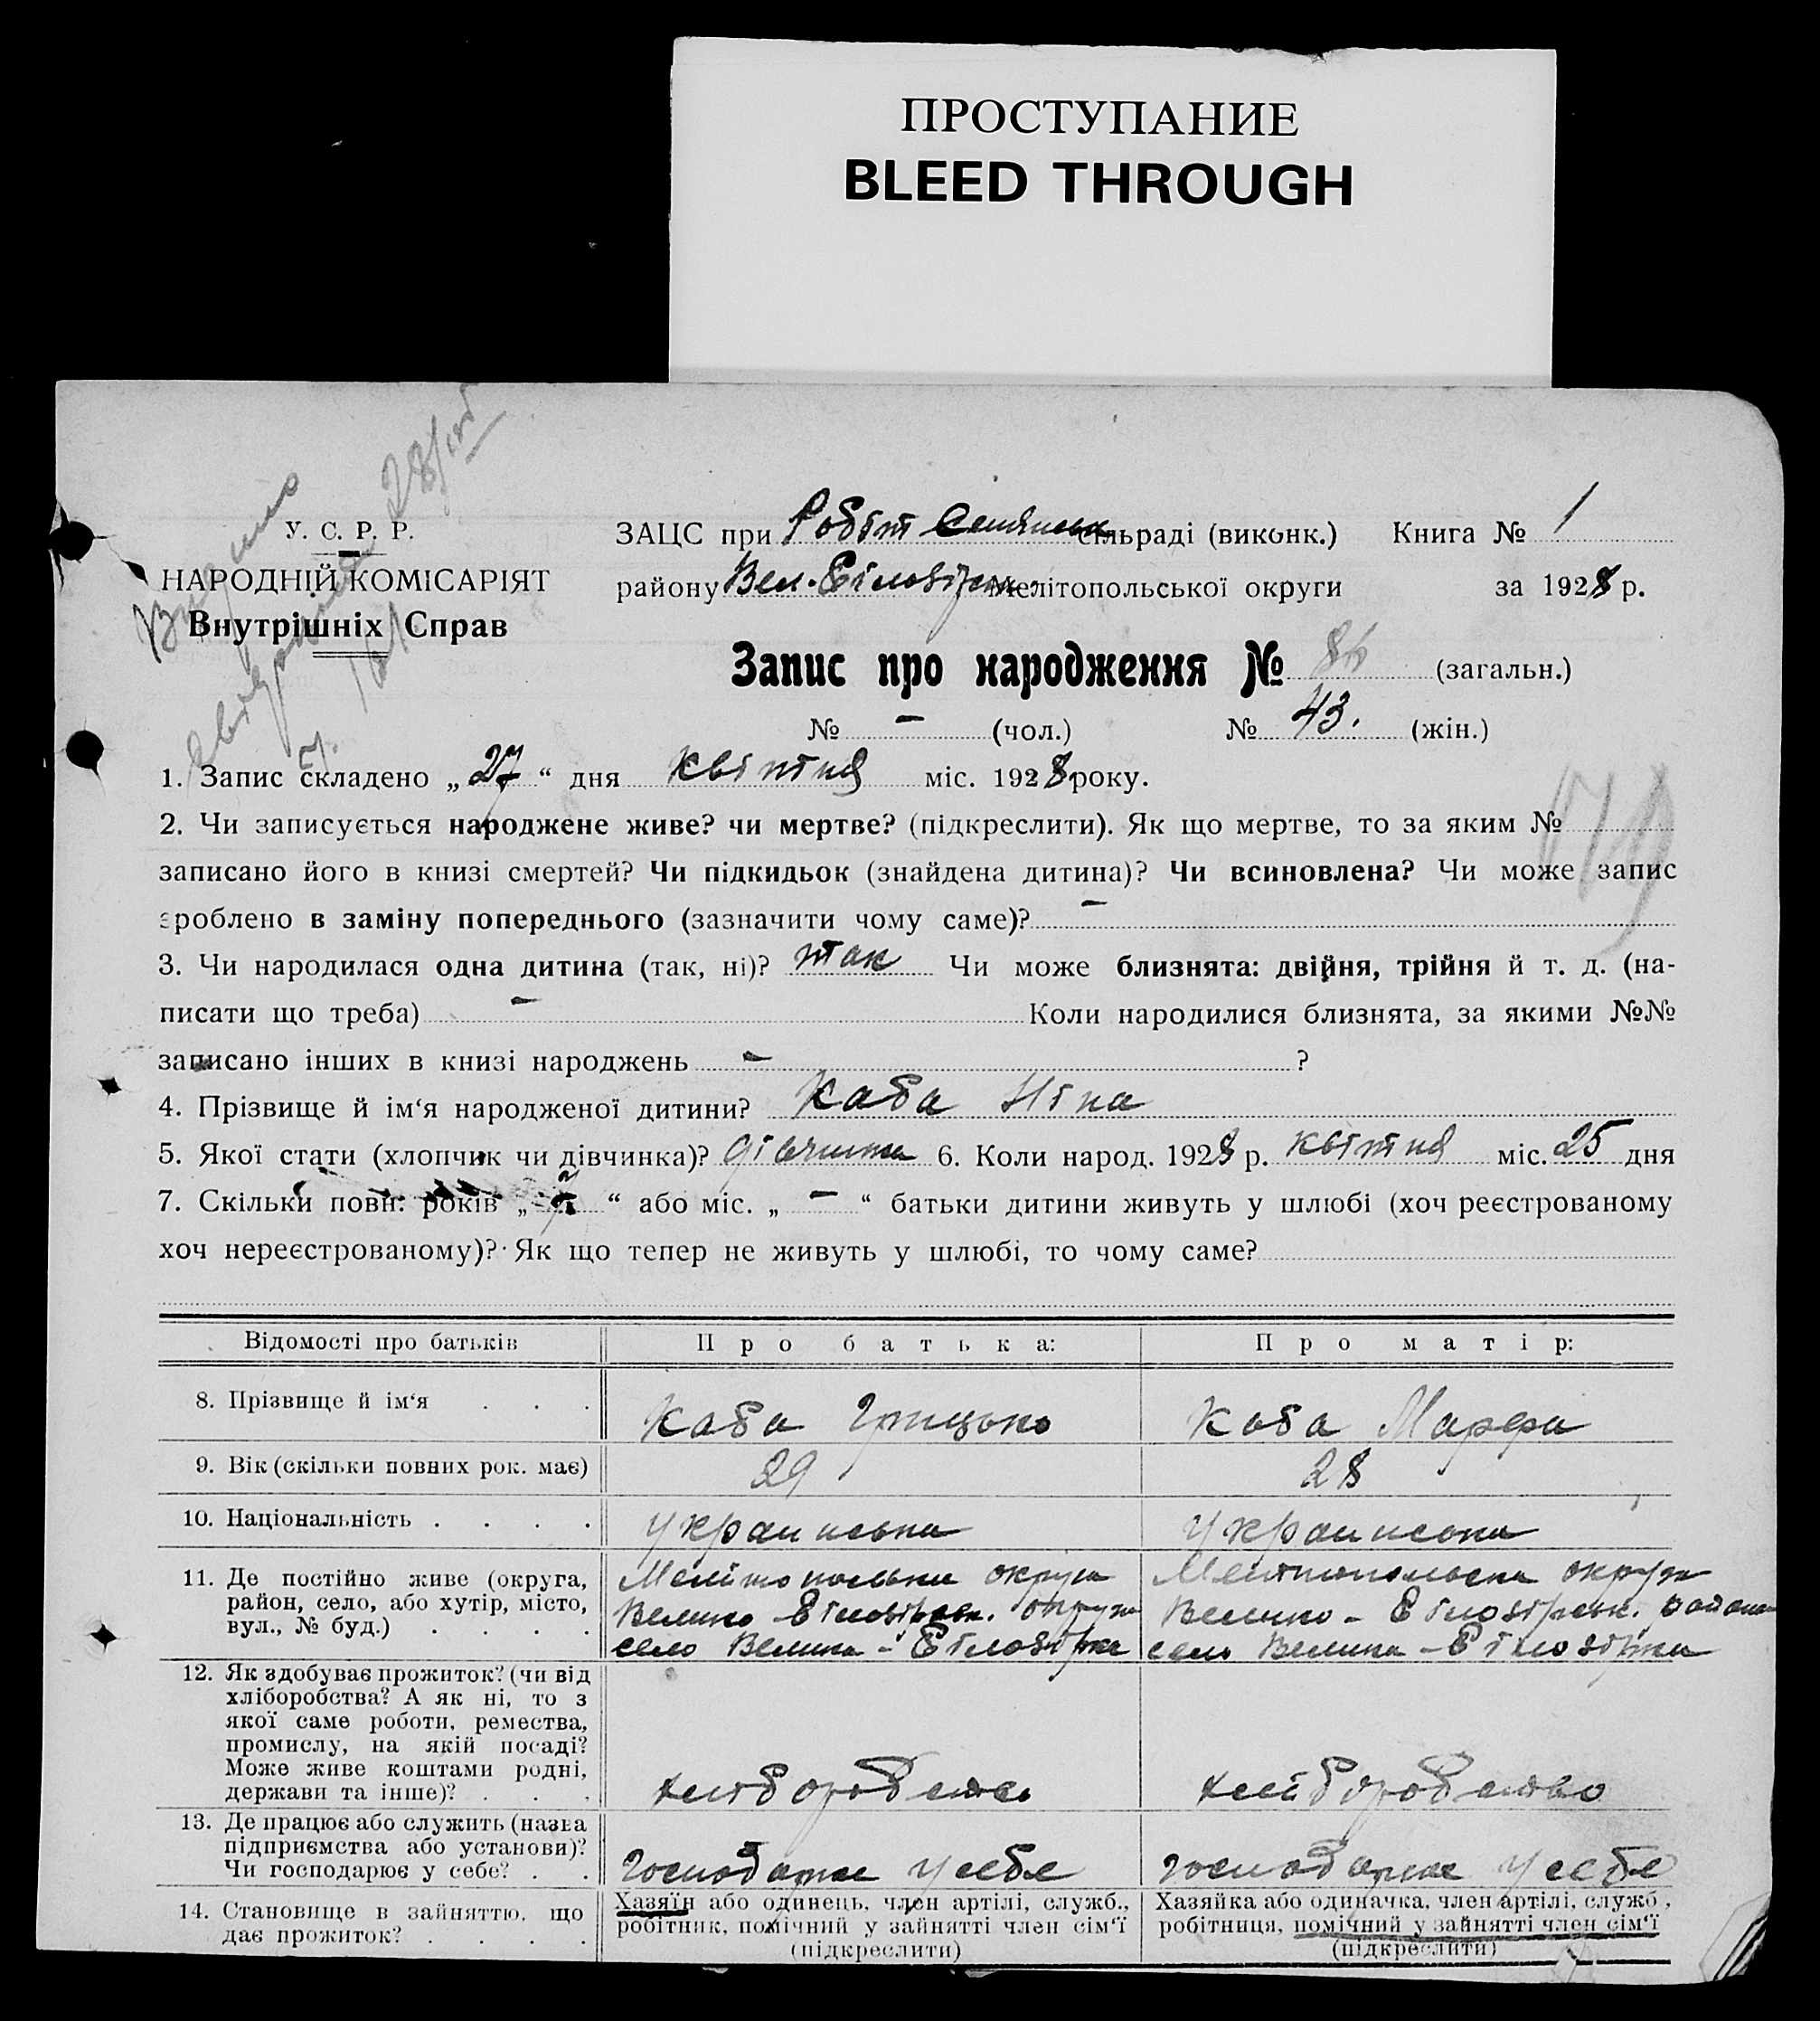 ПРОСТУПАНИЕ
BLEED THROUGH
28/
У. С. Р. Р.
НАРОДНІЙ КОМІСАРІЯТ
Внутрішніх Справ
ЗАЦС при Робіт Селянськ сільраді (виконк.) Книга № 1
району Вел. Білозірськ. Мелітопольської округи за 1928 р.
Запис про народження № 86 (загальн.)
№ – (чол.) № 43. (жін.)
1. Запис складено „27“ дня квітня міс. 1928 року.
2. Чи записується народжене живе? чи мертве? (підкреслити). Як що мертве, то за яким №
записано його в книзі смертей? Чи підкидьок (знайдена дитина)? Чи всиновлена? Чи може запис
зроблено в заміну попереднього (зазначити чому саме)? –
3. Чи народилася одна дитина (так, ні)? так Чи може близнята: двійня, трійня й т. д. (на-
писати що треба) – Коли народилися близнята, за якими №№
записано інших в книзі народжень – ?
4. Прізвище й ім‘я народженої дитини? Каба Ніна
5. Якої стати (хлопчик чи дівчинка)? дівчинка 6. Коли народ. 1928 р. квітня міс. 25 дня
7. Скільки повн. років „ “ або міс. „ – “ батьки дитини живуть у шлюбі (хоч реєстрованому
хоч нереєстрованому)? Як що тепер не живуть у шлюбі, то чому саме?
Відомості про батьків Про батька: Про матір:
8. Прізвище й ім‘я . . . Каба Грицько Каба Марфа
9. Вік (скільки повних рок. має) 29 28
10. Національність . . . . Украинська Украинська
11. Де постійно живе (округа,
район, село, або хутір, місто,
вул., № буд.) . . . .
Мелітопольска округа
Велико-Білозірськ. округа
село Велика-Білозірка
Мелітопольска округа
Велико-Білозірськ. района
село Велика-Білозірка
12. Як здобуває прожиток? (чи від
хліборобства? А як ні, то з
якої саме роботи, ремества,
промислу, на якій посаді?
Може живе коштами родні,
держави та інше)? . . .
хліборобство
хліборобство
13. Де працює або служить (назва
підприємства або установи)?
Чи господарює у себе? . .
господарює у себе
господарює у себе
14. Становище в зайняттю, що
дає прожиток? . . . .
Хазяїн або одинець, член артілі, служб.,
робітник, помічний у зайнятті член сім‘ї
(підкреслити)
Хазяйка або одиначка, член артілі, служб.,
робітниця, помічний у зайнятті член сім‘ї
(підкреслити)